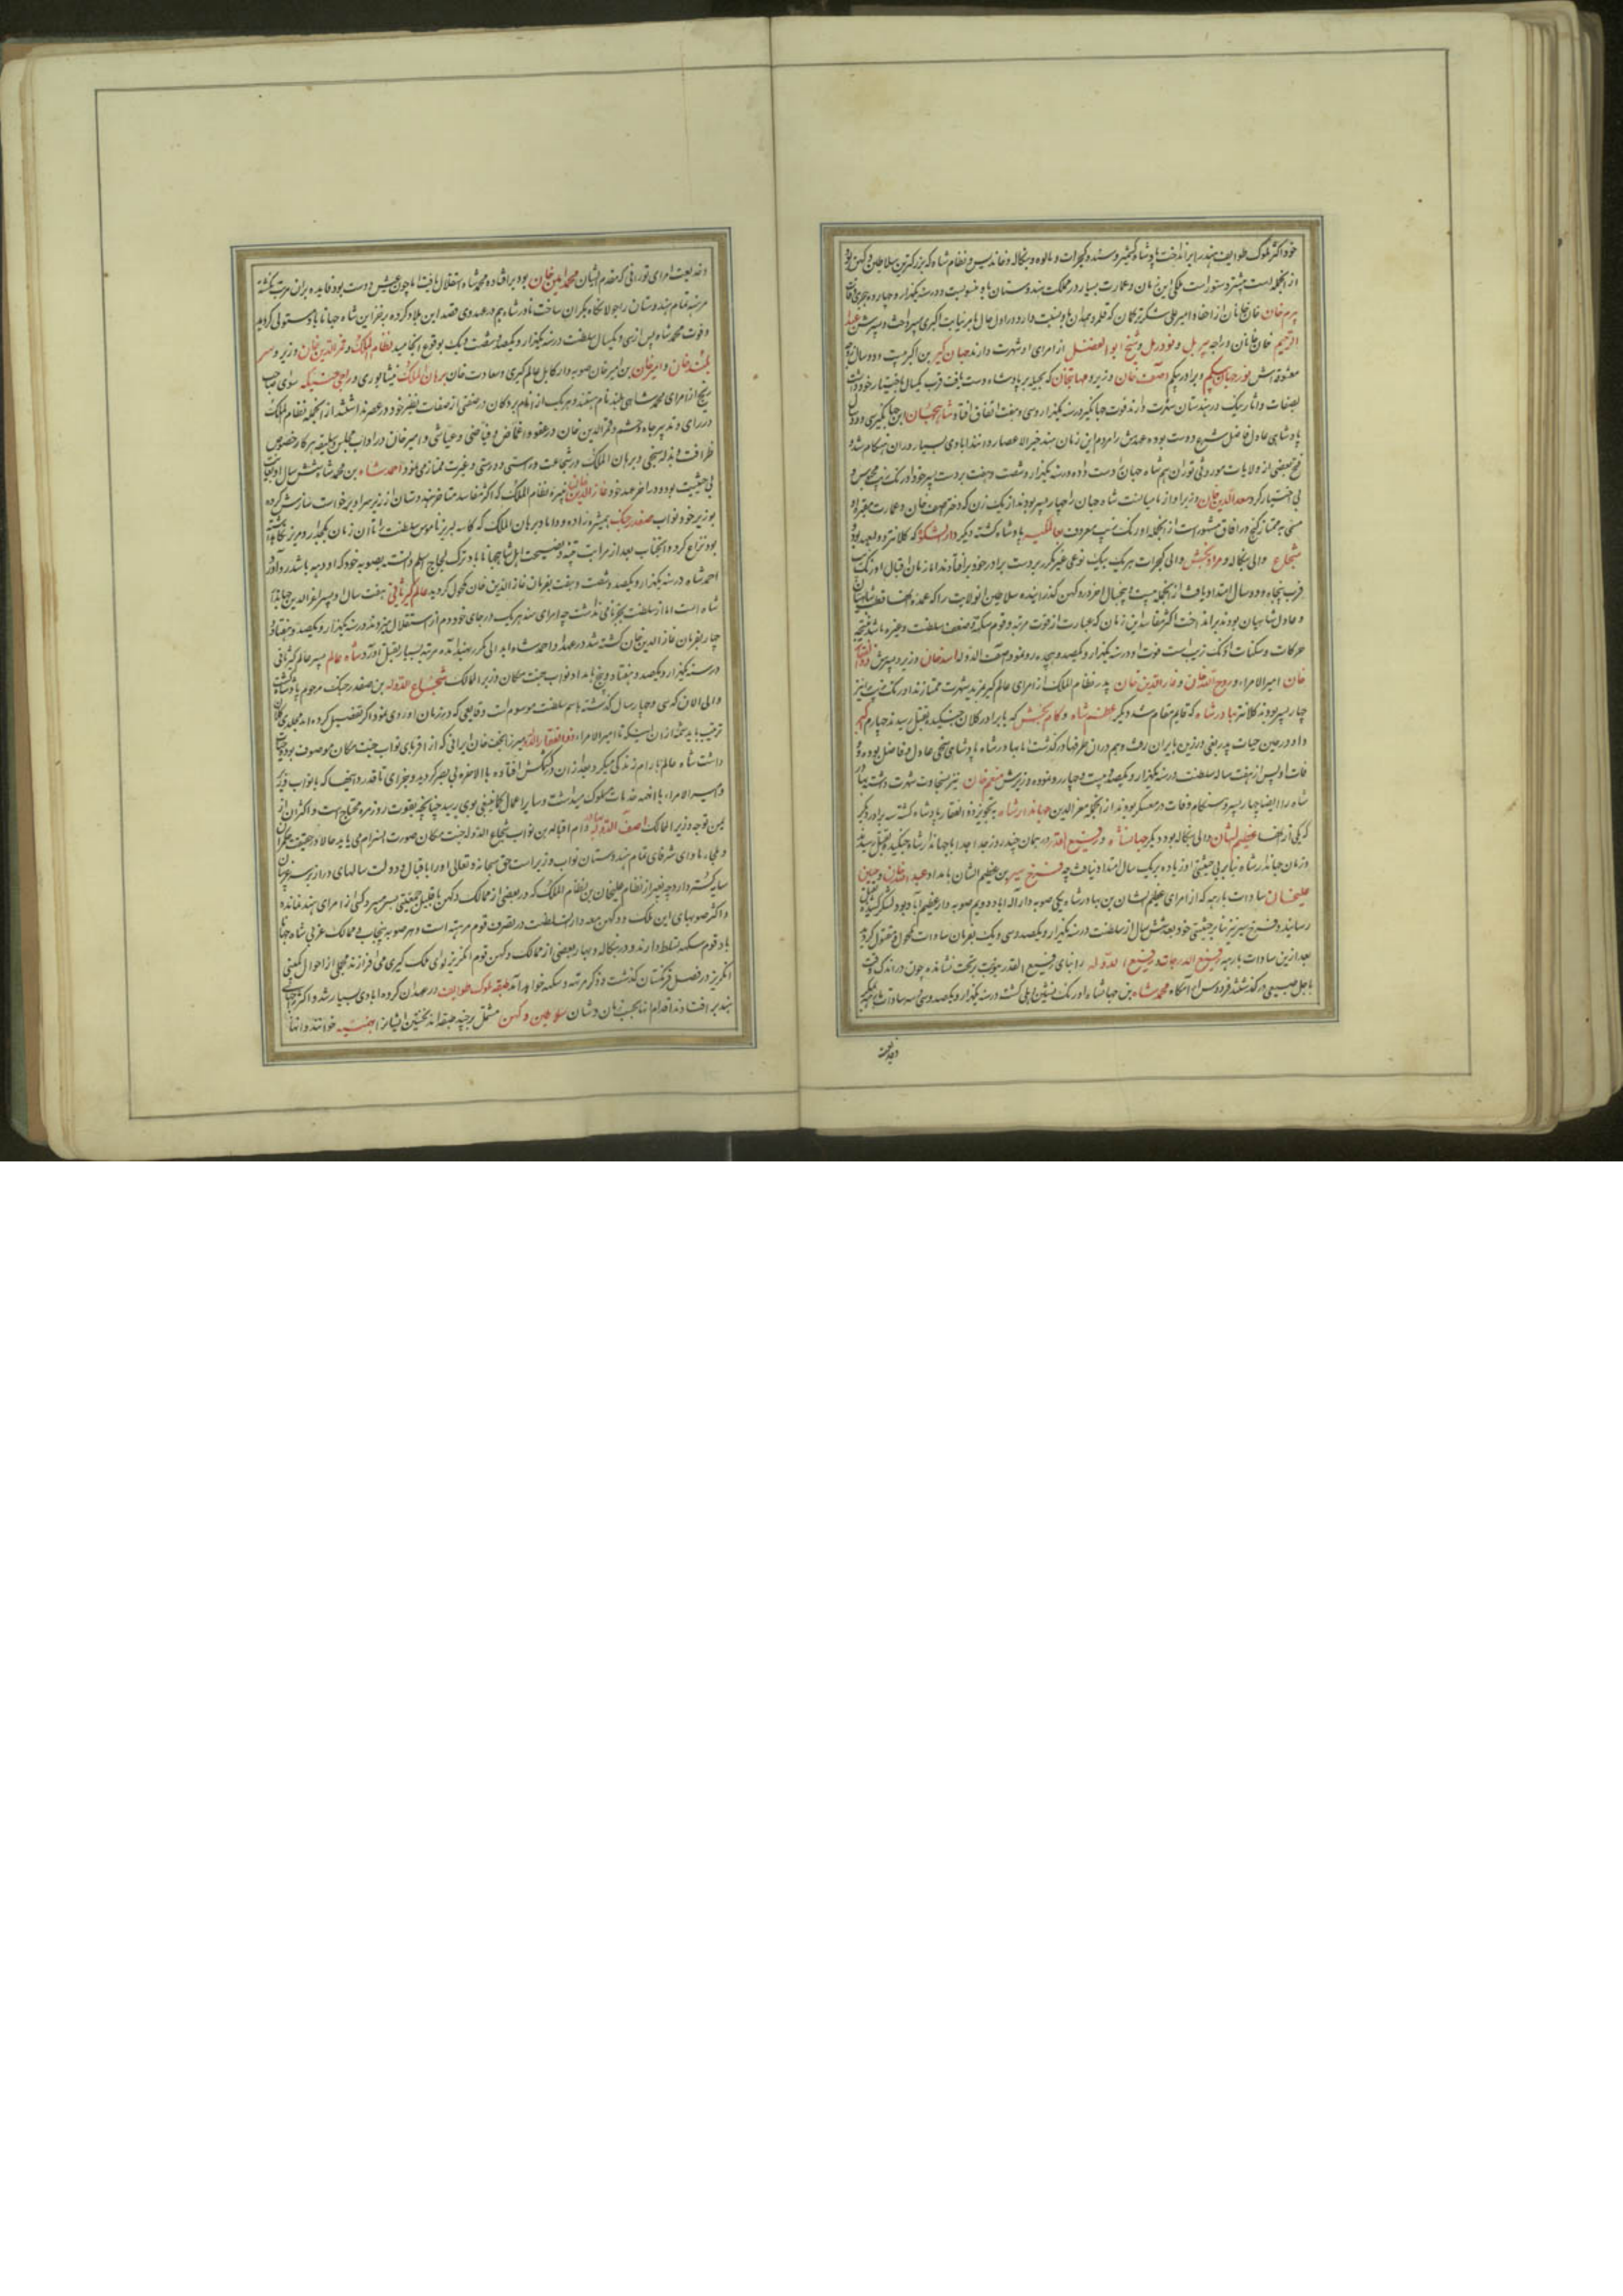 خود اکثر ملوک طوایف هند را برانداخت پادشاه کشمیر و سند و گجرات و مالوه و بنگاله و خاندیس و نظام شاه که بزرگترین سلاطین دکهن بود
از انجمله است بیشتر دستور است ملکی این زمان و عمارت بسیار در مملکت هندوستان باو منسوبست و در سنه یکهزار و چهارده هجری وفات
بیرم خان خان خانان از احفاد امیر علی شکر ترکمان که قلمرو همدان باو نسبت دارد در اول حال بامر نیابت اکبری می پرداخت و پسرش عبد
الرحیم خان خانان و راجه بیربل و تودرمل و شیخ ابوالفضل از امرای او شهرت دارند جهان گیر بن اکبر بیست و دو سال
معشوقه اش نور جهان بیگم و برادر بیگم آصف خان وزیر و مهابتخان که بحیله بر پادشاه دست یافت قرب یکسال باختیار خود داشت
بصفات و آثار نیک در هندوستان شهرت دارند فوت جهانگیر در سنه یکهزار و سی و هفت اتفاق افتاد شاهجهان ابن جهانگیر سی و دو سال
پادشاهی عادل فاضل شرع دوست بوده عهدش را مردم این زمان هند خیر الاعصار دانند ابادی بسیار دران هنکام شد و
فتح بعضی از ولایات موروثی توران هم شاه جهان را دست داده در سنه یکهزار و شصت و هفت بر دست پسر خود اورنک زیب محبوس و
بی اختیار کرد سعد الدین خان وزیر او از شاه جهان را چهار پسر بودند از یک زن که دختر آصف خان و عمارت مقبره او
مسمی به ممتاز گنج در افاق مشهور است از انجمله اورنک زیب معروف بعالمگیر پادشاه گشته دیگر دارا شکوه که کلانتر و ولیعهد بود
شجاع والی بنگاله و مراد بخش والی گجرات هر یک بیک نوعی غیر مکرر بر دست برادر خود بر افتادند اما زمان اقبال اورنک زیب
قرب پنجاه و دو سال امتداد یافت از انجمله بیست و پنج سال اخر در دکهن گذرانیده سلاطین ان ولایت را که عمده انها قطب شاهیان
و عادل شاهیان بودند برانداخت اکثر مفاسد این زمان که عبارت از قوت مرهته و قوم سکه و ضعف سلطنت و غیره باشد نتیجه
حرکات و سکنات اورنک زیب است فوت او در سنه یکهزار و یکصد و هجده رو نمود آصف الدوله اسد خان وزیر و پسرش ذو الفقار
خان امیر الامراء و روح الله خان و غاز الدین خان پدر نظام الملک از امرای عالم گیر بمزید شهرت ممتازند اورنک زیب را نیز
چار پسر بودند کلانتر بهادر شاه که قایم مقام شد دیگر اعظم شاه و کام بخش که با برادر کلان جنگیده بقتل رسیدند چهارم اکبر
داد در حین حیات پدر یعنی ورزیدن بایران رفت و هم دران طرفها درگذشت اما بهادر شاه پادشاهی سخی عادل و فاضل بوده و
وفات او پس از هفت ساله سلطنت در سنه یکهزار و یکصد و بیست و چهار رو نموده وزیرش منعم خان نیز بسخاوت شهرت داشت بهادر
شاه را ایضا چار پسر و هنگام وفات در معسکر بودند از انجمله معز الدین جهاندار شاه به تجویز ذو الفقار پادشاه گشته سه برادر دیگر
که یکی از انها عظیم الشان والی بنگاله بود و دیگر جهانشاه و رفیع القدر در همان چند روز جدا جدا با جهاندار شاه جنگیده بقتل رسیدند
و زمان جهاندار شاه بنا بر بی حیثیتی او زیاده بر یک سال امتداد نیافت چه فرخ سیر بن عظیم الشان بامداد عبد الله خان و حسین
علیخان سادات بارهه که از امرای عظیم الشان بن بهادر شاه یکی صوبه دار اله اباد و دویم صوبه دار عظیم آباد بود لشکر کشیده بقتل
رسانید و فرخ سیر نیز بنا بر بی حیثیتی خود بعد شش سال از سلطنت در سنه یکهزار و یکصد و سی و یک بفرمان سادات مکحول و مقتول گردید
بعد ازین سادات بارهه رفیع الدرجات و رفیع الدوله را ابنای رفیع القدر بنوبت بر تخت نشانده چون در اندک وقت
باجل طبیعی درگذشتند فردوس آرامگاه محمد شاه بن جهانشاه اورنک نشین دهلی گشت در سنه یکهزار و یکصد و سی و سه سادات بارهه
و خدیعت
و خدیعت امرای تورانی که مقدم ایشان محمد امین خان بود بر افتاده محمد شاه استقلال یافت اما چون عیش دوست بود فایده بران مرتب نگشته
مرهته تمام هندوستان را جولانگاه یکران ساخت نادر شاه هم در عهد وی قصد این بلاد کرده بر خزاین شاه جهاناباد مستولی گردید
و فوت محمد شاه پس از سی و یکسال سلطنت در سنه یکهزار و یکصد و شصت و یک بوقوع انجامید نظام الملک و قمر الدین خان وزیر و سر
بلند خان و امیر خان بن امیر خان صوبه دار کابل عالم گیری و سعادت خان برهان الملک نیشابوری و راجه جی سنگه سوای صاحب
زیج از امرای محمد شاهی بلند نام هستند و هر یک از انام بردگان در صفتی از صفات نظیر خود در عصر نداشتند از انجمله نظام الملک
در رای و تدبیر جاه و حشم و قمر الدین خان در عفو و اغماض و فیاضی و عیاشی و امیر خان در اداب مجلس و سلیقه هر کار خصوص
ظرافت و بذله سنجی و برهان الملک در شجاعت و راستی و درستی و غیرت ممتاز می نمود احمد شاه بن محمد شاه شش سال
بی حیثیت بوده و در اخر عهد خود غاز الدین خان نبیره نظام الملک که اکثر مفاسد متاخر هندوستان از زیر سر او برخواست سازش کرده
بوزیر خود نواب صفدر جنک همشیره زاده و داماد برهان الملک که کاسه لبریز ناموس سلطنت را تا ان زمان
بود نزاع کرد و انجناب بعد از مراتب تنبه و نصیحت اهل شاهجهاناباد ترک لجاج اسلم دانسته بصوبه خود که اودهه باشد رو آورد
احمد شاه در سنه یکهزار و یکصد و شصت و هفت بفرمان غاز الدین خان مکحول گردید عالم گیر ثانی هفت سال او پسر معز الدین جهاندار
شاه است اما از سلطنت بجز نامی نداشت چه امرای هند هر یک در جای خود دم از استقلال میزدند در سنه یکهزار و یکصد و هفتاد و
چار بفرمان غاز الدین خان کشته شد در عهد او احمد شاه ابدالی مکرر بهند آمده مرهته بسیار بقتل اورد شاه عالم پسر عالم گیر ثانی
در سنه یکهزار و یکصد و هفتاد و پنج بامداد نواب جنت مکان وزیر الممالک شجاع الدوله بن صفدر جنک مرحوم پادشاه گشت
و الی الان که سی و چهار سال گذشته باسم سلطنت موسوم است وقایعی که در زمان او روی نمود اگر تفضیل کرده اید مجلدی کلان
ترتیب باید شمه از ان اینکه تا امیر الامراء ذو الفقار الدوله میرزا نجف خان ایرانی که از اقربای نواب جنت مکان موصوف بود حیات
داشت شاه عالم بارام زندگی میکرد بعد از ان در کشمکش افتاده بالاخره بی بصر گردید و بجزای ناقدر دانیها که با نواب وزیر
و امیر الامراء با انهمه خدمات سلوک میداشت و سایر اعمال بوی رسید چنانچه بقوت روز مره محتاج است و اکثر ان از
یمن توجه وزیر الممالک آصف الدوله بهادر دام اقباله بن نواب شجاع الدوله جنت مکان صورت انصرام می یابد حالا در حقیقت حکمران
و ملجاء ماوای شرفای تمام هندوستان نواب وزیر است حق سبحانه و تعالی او را باقبال و دولت سالهای دراز بر سر غریبان
سایه گستر دارد چه بغیر از نظام علیخان بن نظام الملک که در بعضی از ممالک دکهن با قلیل جمعیتی بسر میبرد کسی از امرای هند نمانده
و اکثر صوبهای این ملک و دکهن معه دار السلطنت در تصرف قوم مرهته است و هر صوبه پنجاب و ممالک غربی شاه جهان
اباد قوم سکهه تسلط دارند و در بنگاله و بهار و بعضی از ممالک دکهن قوم انگریز لوای ملک گیری می افرازند مجملی از احوال کمپنی
انگریز در فصل فرنگستان گذشت و ذکر مرهته و سکهه خواهد آمد طبقه ملوک طوایف در عهد ان گروه ابادی بسیار شد و اکثر
هند بر افتادند اقدام انها بحسب زمان و شان سلاطین دکهن مشتمل بر چند طبقه اند نخستین ایشانرا بهمنیه خوانند و انها